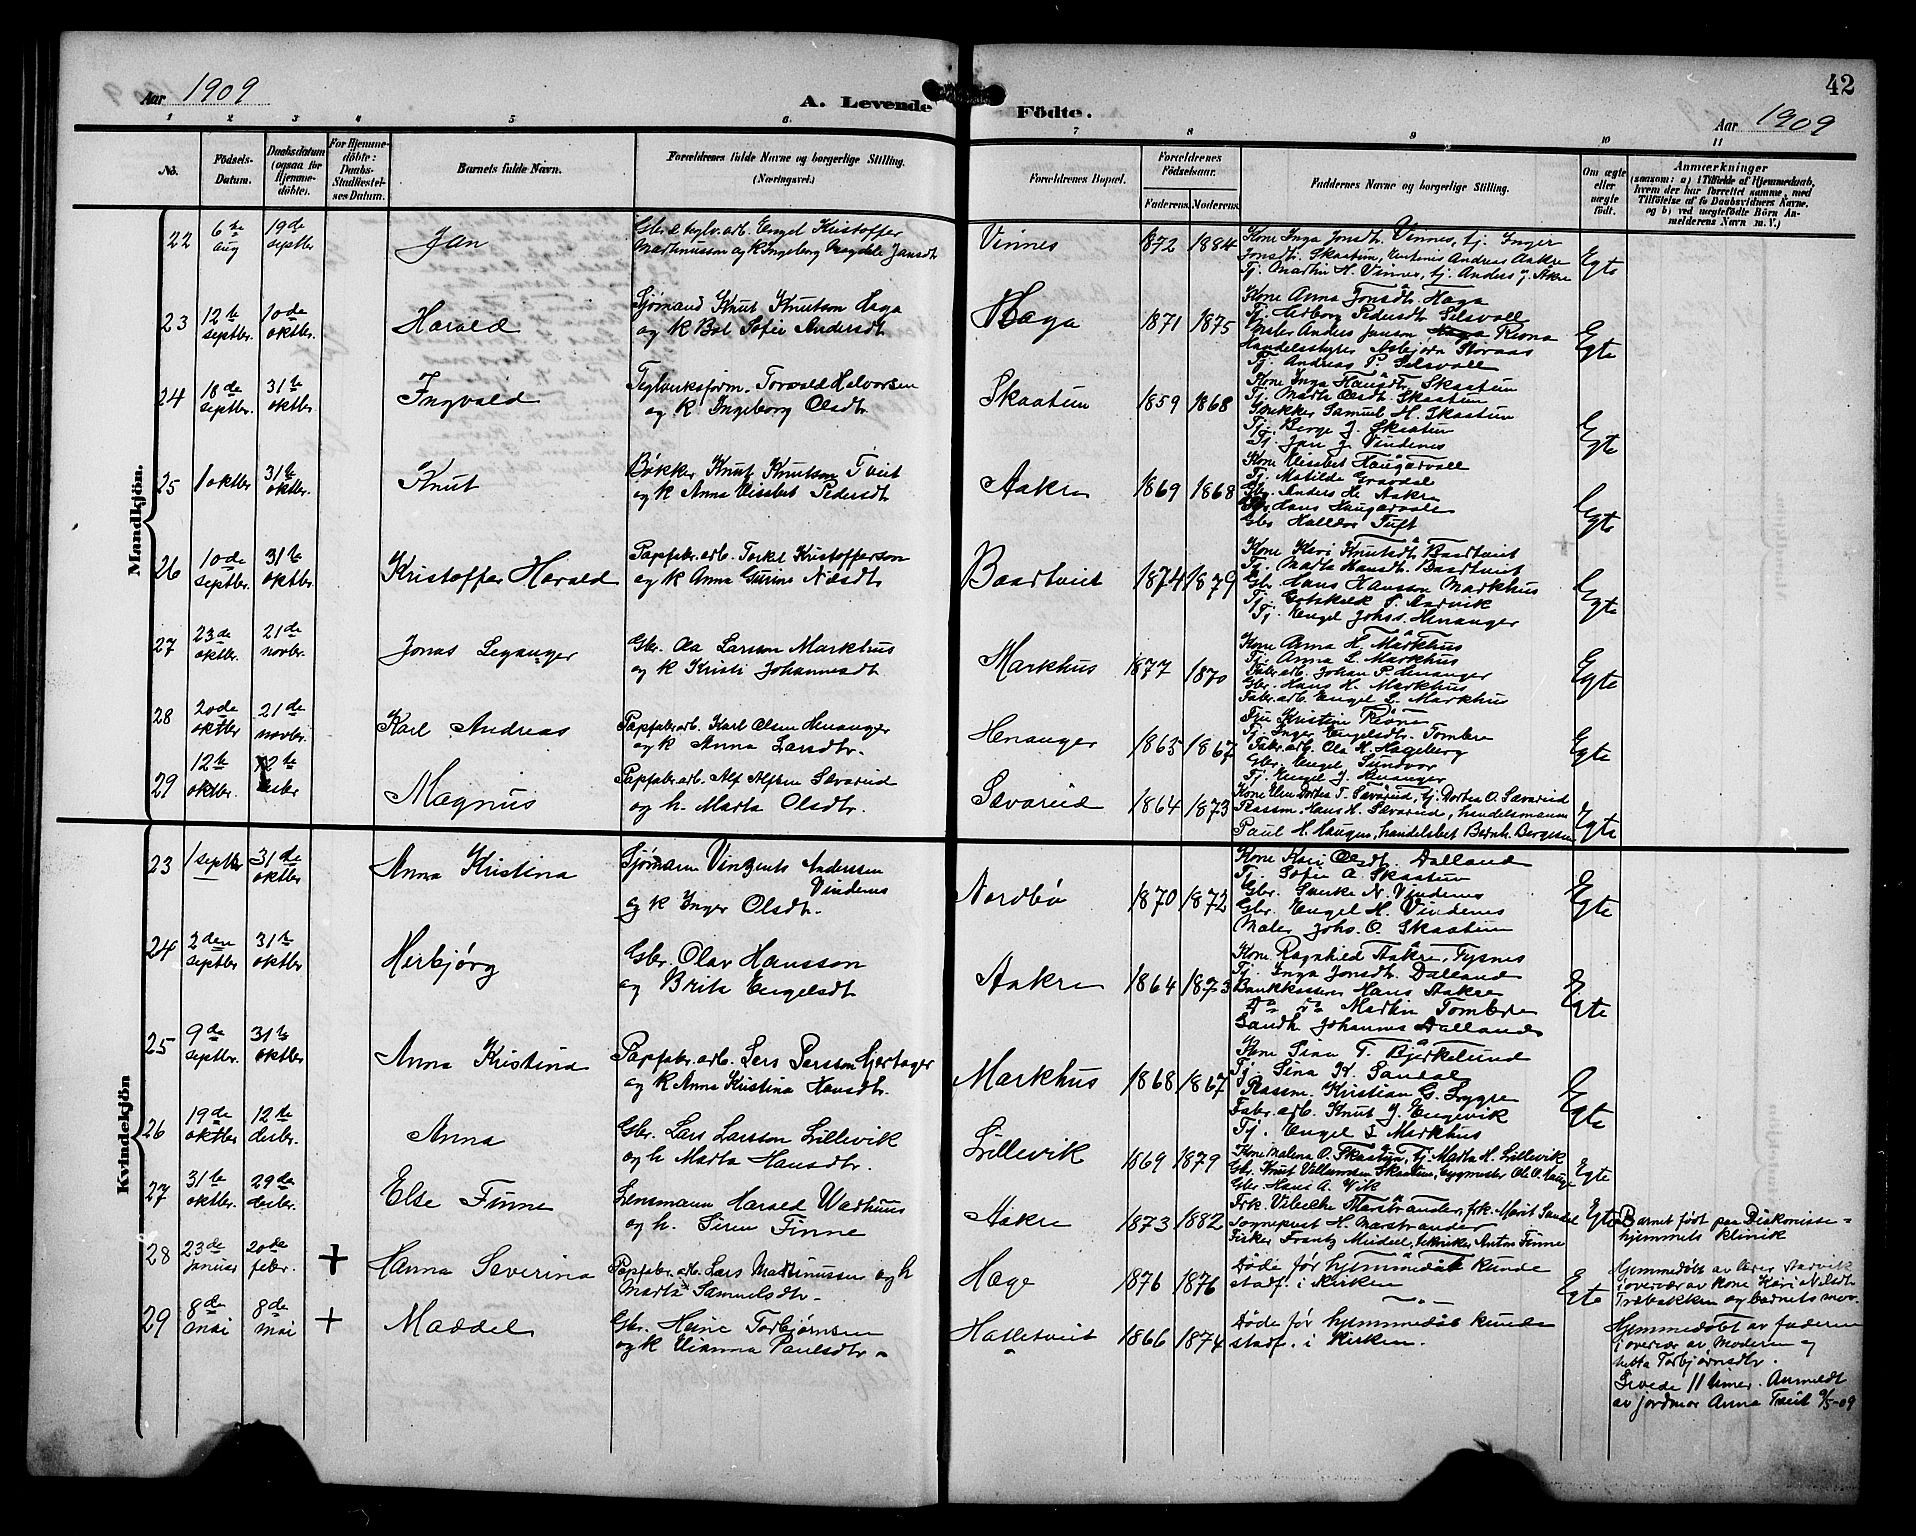 42
Aar 1909
A. Levende
Födte.
Aar 1909
1 2 3 4 5 6 7 8 9 10 11
No.
Födsels-
Datum.
Daabsdatum
(ogsaa for
Hjemme-
döbte).
For Hjemme-
döbte:
Daabs-
Stadfæstel-
ses Datum.
Barnets fulde Navn.
Forældrenes fulde Navne og borgerlige Stilling.
(Næringsvei.)
Forældrenes Bopæl.
Forældrenes
Födselsaar.
Faderens. Moderens.
Faddernes Navne og borgerlige Stilling.
Om ægte
eller
uægte
födt.
Anmærkninger
(saasom: a) i Tilfælde af Hjemmedaab,
hvem der har forrettet samme, med
Tilföielse af to Daabsvidners Navne,
og b) ved uægtefödte Börn An-
melderens Navn m. V.)
Mandkjön.
22 6te aug 19de septbr Jan
Kristoffer
Martinussen og k Ingeborg Magdele Jansdt
Vinnes 1872 1884
Kone Inga Jonsdt. Vinnes, tj. Inger
Jonsdt. Skaatun, Andreas Aakre
Tj. Martin H. Vinnes, tj. Anders J. Akre
Egte
23 12te septbr. 10de oktbr. Harald
Sjømand Knut Knutson Haga
og k Bol Sofie Andersdt
Haga 1871 1875
Kone Anna Jonsdtr. Haga
Tj. Herborg Pedersdt. Selsvoll
Anders Janson Rivna
Asbjørn Storaas
Tj. Andreas P. Selsvoll
Egte
24 18de septbr. 31te oktbr. Ingvald
Torvald Halvorsen
og k Ingeborg Olsdt.
Skaatun 1859 1868
Kone Inga Hansdtr. Skaatun
Tj. Marta Olsdt. Skaatun
Snekker Samuel H. Skaatun
Tj. Berge J. Skaatun
Tj. Jan J. Vindenes
Egte
25 1 oktbr 31te oktbr. Knut
Bøkker Knut Knutson Tveit
og k Anna Elisabet Pedersdt
Aakre 1869 1868
Kone Elisabet Haugarvoll
Tj. Matilde Gravdal
Gbr. Anders H. Aakre
Hans Haugarvoll
Gbr Halldor Tuft
Egte
26 10de septbr. 31te oktbr. Kristoffer Harald
Papfabr.arb. Torkel Kristofferson
og k Anna Gurine Nilsdt.
Baartveit 1874 1879
Kone Kari Knutsdt. Baartveit
Tj. Marta Hansdt. Baartveit
Gbr Hans Hansson Markhus
Tj. Gotskalk S. Aarvik
Tj. Engel Johs.s. Henanger
Egte
27 23de oktbr. 21de novbr. Jonas Leganger
Gbr. Oa Larsson Markhus
og k Kristi Johannesdt
Markhus 1877 1870
Kone Anna H. Markhus
Tj. Anna L. Markhus
Fabr.arb. Johan P. Henanger
Gbr. Hans H. Markhus
Fabr.arb. Engel L. Markhus
Egte
28 20de oktbr 21de novbr. Karl Andreas
Papfabr.arb. Karl Olsen Henanger
og k Anna Larsdtr.
Henanger 1865 1867
Kristine Rivne
Tj. Inger Engelsdt. Tombre
Fabr.arb. Ola K. Hageberg
Gbr. Engel Sundvor
Tj. Engel J. Henanger
Egte
29 12te oktbr. 12te desbr Magnus
Papfabr.arb. Alf Alfsen Sævareid
og h. Marta Olsdtr.
Sævareid 1864 1873
Kone Elen Dortea T. Sævareid, tj. Dortea O. Sævareid
Rasm. Hans H. Sævareid, handelsmann
Paul H. Haugen, handelsbet Bernh. Bergesen
Egte
Kvindekjön
23 1 septbr 31de oktbr Anna Kristina
Sjømann Vinzents Anderssen
Vindenes
og k Inger Olsdt.
Nordbø 1870 1872
Kone Kari Olsdt. Dalland
Tj. Sofie A. Skaatun
Gbr. Sverke N. Vindenes
Gbr. Engel H. Vindenes
Maler Johs. O. Skaatun
Egte
24 2den septbr 31te oktbr Herbjørg
Gbr. Olav Hansson
og Brita Engelsdt
Aakre 1864 1873
Kone Ragnhild Aakre, Tysnes
Tj. Inga Jonsdt. Dalland
Bankkasserer Hans Aakre
Do Do Martin Tombre
Landh. Johannes Dalland
Egte
25 9de septbr. 31te oktbr Anna Kristina
Papfabr.arb. Lars Larsson Hjertager
og k Anna Kristina Hansdtr.
Markhus 1868 1867
Kone Sina T. Bjerkelund
Tj. Sina K. Sandal
Rasm. Kristian G. Lygre
Fabr.arb. Knut J. Engevik
Tj. Engel L Markhus
Egte
26 19de oktbr 12te desbr. Anna
Gbr. Lars Larsson Lillevik
og h Marta Hansdtr.
Lillevik 1869 1879
Kone Malena O. Skaatun, tj Marta H. Lillevik
Gbr. Knut Villumsen Skaatun, bygmester Ole O. Hauge
Gbr. Hans A. Vik
Egte
27 31te oktbr. 29de desbr. Else Finne
Lensmann Harald Wadhuus
og h. Siren Finne
Aakre 1873 1882
Frk. Vibeche Marstrander, frk. Marit Sandel
Sogneprest H. Marstrander
Fisker Frantz Meidell, tekniker Anton Finne
Egte
Barnet født paa Diakonisse=
hjemmets klinik
28 23de januar 20de febr. + Hanna Severina
Papfabr.arb. Lars Martinussen og h
Marta Samuelsdtr.
Hage 1876 1876
Døde før hjemmedåb kunde
stadf. i kirken
Egte
Hjemmedøbt av lærer Aarvik
i overvær av kone Kari Nilsdt.
Træbakken og barnets mor
29 8de mai 8de mai + Maddel
Gbr. Heine Torbjørnsen
og k Vianna Paulsdtr.
Hatletveit 1866 1874
Døde før hjemmedåb kunde
stadf. i Kirken.
Hjemmedøbt av faderen
i overvær av Moderen og
Torbjørnsdtr.
Levede 11 timer. Anmeldt
av jordmor Anna Tveit 9/5-09